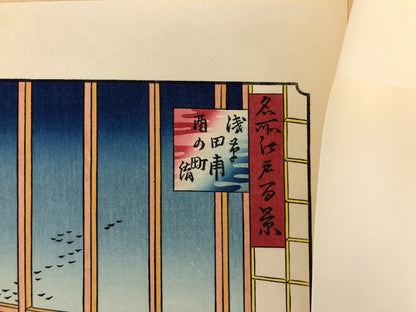 名所江戸百景
浅草
田甫
酉の町
詣